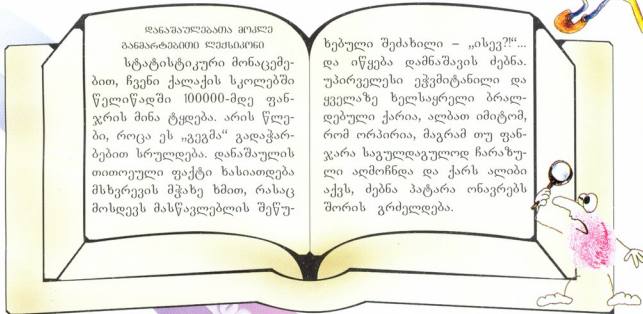 დანაშაულებათა მოკლე
განმარტებითი ლექსიკონი
სტატისტიკური მონაცემე-
ბით, ჩვენი ქალაქის სკოლებში
წელიწადში 100000-მდე ფან-
ჯრის მინა ტყდება. არის წლე-
ბი, როცა ეს „გეგმა“ გადაჭარ-
ბებით სრულდება. დანაშაულის
თითოეული ფაქტი ხასიათდება
მსხვრევის მჭახე ხმით, რასაც
მოსდევს მასწავლებლის შეწუ-
ხებული შეძახილი – „ისევ?!“...
და იწყება დამნაშავის ძებნა.
უპირველესი ეჭვმიტანილი და
ყველაზე ხელსაყრელი ბრალ-
დებული ქარია, ალბათ იმიტომ,
რომ ორპირია, მაგრამ თუ ფან-
ჯარა საგულდაგულოდ ჩარაზუ-
ლი აღმოჩნდა და ქარს ალიბი
აქვს, ძებნა პატარა ონავრებს
შორის გრძელდება.